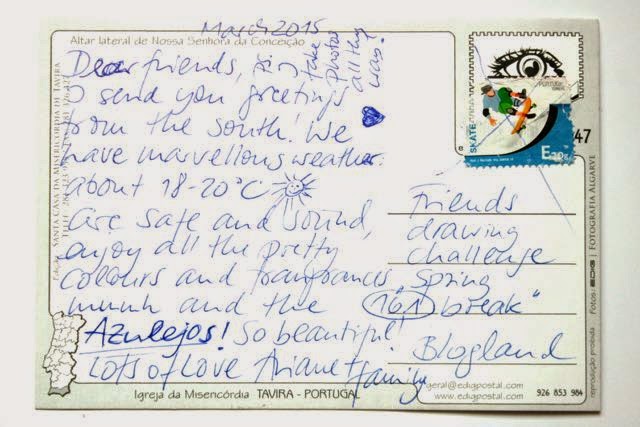 March 2015
Altar lateral de Nossa Senhora da Conceição
Dear friends,
I send you greetings
from the south! We
have marvellous weather.
about 18-20°C
are safe and sound,
enjoy all the pretty
colours and frangrances
and the
Azulejos! So beautiful
Lots of Love Ariane +
family
take
photos
all the
way!
Friends
drawing
challenge
"spring
break"
161
Blogland
PORTUGAL
SKATE
E20g
47
SANTA CASA DA MISERICÓRDIA DE TAVIRA
Fotos: EDIG | FOTOGRAFIA ALGARVE
reprodução proibida
geral@edigpostal.com
www.edigpostal.com
926 853 984
Igreja da Misericórdia TAVIRA - PORTUGAL